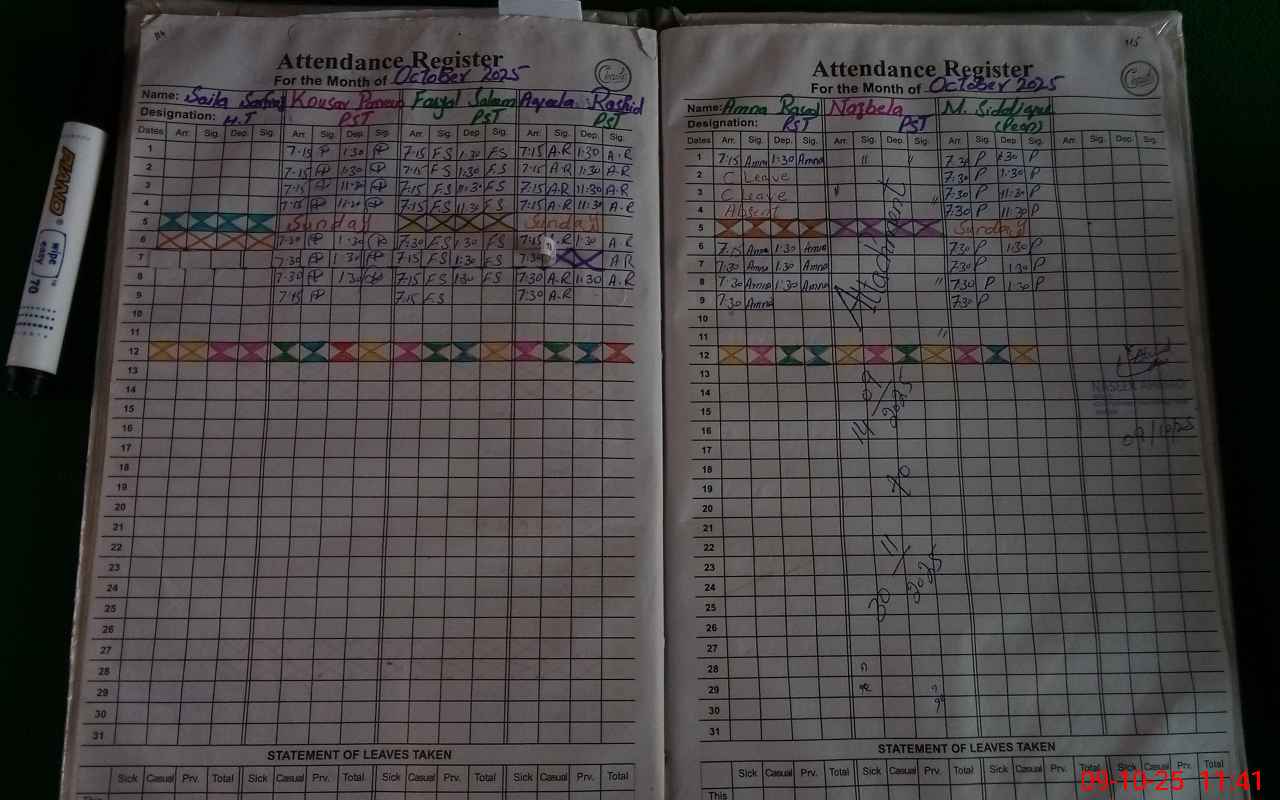 114
Attendance Register
For the Month of October 2025
Name: Saila Kousar Parveen Fasyal Saleem Aqeela Rashid
Designation: H.T PST PST PST
Dates Arr. Sig. Dep. Sig. Arr. Sig. Dep. Sig. Arr. Sig. Dep. Sig. Arr. Sig. Dep. Sig.
1 7:15 P 1:30 P 7:15 F.S 1:30 F.S 7:15 A.R 1:30 A.R
2 7:15 P 1:30 P 7:15 F.S 1:30 F.S 7:15 A.R 1:30 A.R
3 7:15 P 11:30 P 7:15 F.S 11:30 F.S 7:15 A.R 11:30 A.R
4 7:15 P 11:30 P 7:15 F.S 11:30 F.S 7:15 A.R 11:30 A.R
5 Sunday Sunday
6 7:30 P 1:30 P 7:30 F.S 1:30 F.S 7:15 A.R 1:30 A.R
7 7:30 P 1:30 P 7:15 F.S 1:30 F.S 7:30 A.R
8 7:30 P 1:30 P 7:15 F.S 1:30 F.S 7:30 A.R 1:30 A.R
9 7:15 P 7:15 F.S 7:30 A.R
10
11
12
13
14
15
16
17
18
19
20
21
22
23
24
25
26
27
28
29
30
31
STATEMENT OF LEAVES TAKEN
Sick Casual Prv. Total Sick Casual Prv. Total Sick Casual Prv. Total Sick Casual Prv. Total
This
115
Attendance Register
For the Month of October 2025
Name: Amna Rasool Nazbela M. Siddique
Designation: PST PST (Peon)
Dates Arr. Sig. Dep. Sig. Arr. Sig. Dep. Sig. Arr. Sig. Dep. Sig. Arr. Sig. Dep. Sig.
1 7:15 Amna 1:30 Amna " " 7:30 P 1:30 P
2 C Leave 7:30 P 1:30 P
3 C Leave " " 7:30 P 11:30 P
4 Absent 7:30 P 11:30 P
5 Sunday
6 7:15 Amna 1:30 Amna 7:30 P 1:30 P
7 7:30 Amna 1:30 Amna 7:30 P 1:30 P
8 7:30 Amna 1:30 Amna " 7:30 P 1:30 P
9 7:30 Amna 7:30 P
10
11 "
12
13
14
15
16
17
18
19
20
21
22
23
24
25
26
27
28
29
30
31
Attachment
14 09/2025
To
30 11/2025
09/10/25
STATEMENT OF LEAVES TAKEN
Sick Casual Prv. Total Sick Casual Prv. Total Sick Casual Prv. Total Sick Casual Prv. Total
This
PIANO
wipe easy 70
09-10-25 11:41